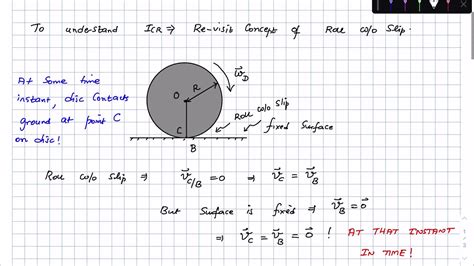 To understand ICR ⇒ Re-visit Concept of Roll w/o Slip.
At Some time
instant, disc Contacts
ground at point C
on disc!
R
O
C
B
ω⃗_D
Roll w/o slip
fixed Surface
Roll w/o Slip ⇒ v⃗_C/B = 0 ⇒ v⃗_C = v⃗_B
But Surface is fixed ⇒ v⃗_B = 0⃗
⇒ v⃗_C = v⃗_B = 0⃗ ! AT THAT INSTANT
IN TIME!